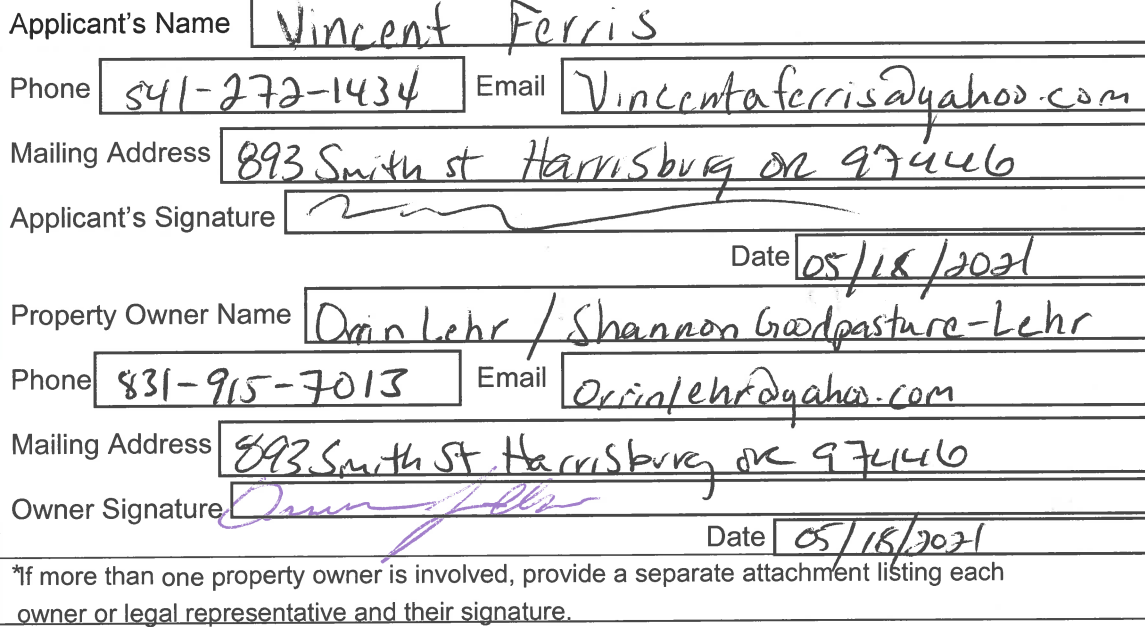 Applicant's Name Vincent Ferris
Phone 541-272-1434 Email Vincentaferris@yahoo.com
Mailing Address 893 Smith st Harrisburg OR 97446
Applicant's Signature
Date 05/18/2021
Property Owner Name Orrin Lehr / Shannon Goodpasture-Lehr
Phone 831-915-7013 Email Orrinlehr@yahoo.com
Mailing Address 893 Smith St Harrisburg OR 97446
Owner Signature
Date 05/18/2021
*If more than one property owner is involved, provide a separate attachment listing each
owner or legal representative and their signature.